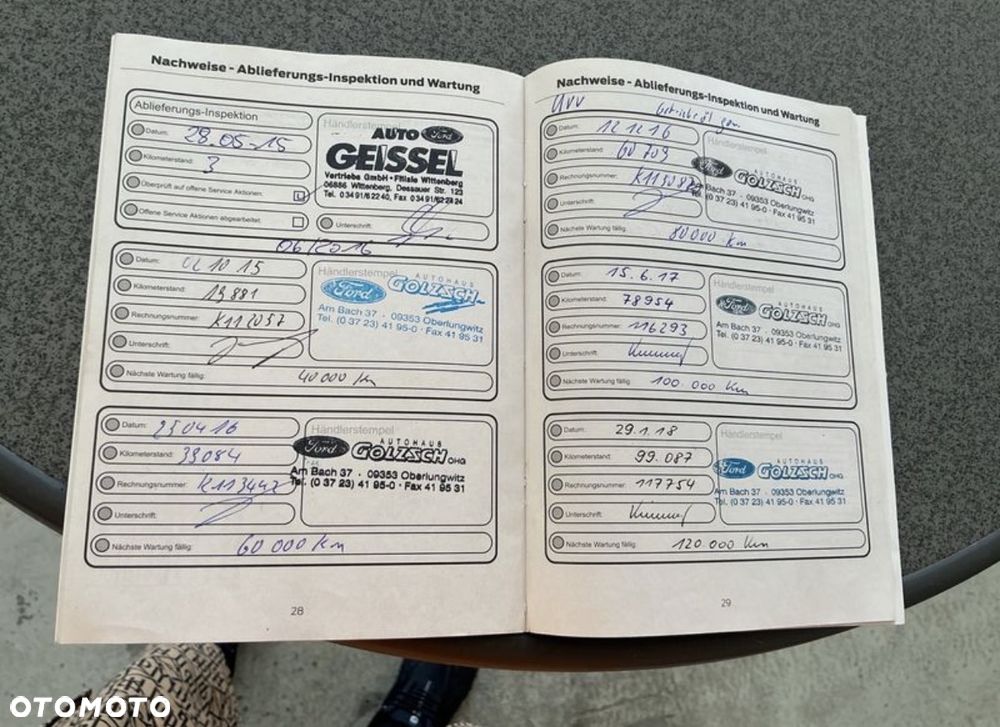 Nachweise - Ablieferungs-Inspektion und Wartung
Ablieferungs-Inspektion
Datum: 28.05.15
Kilometerstand: 3
Überprüft auf offene Service Aktionen.
Offene Service Aktionen abgearbeitet.
Händlerstempel
AUTO Ford
GEISSEL
Vertriebs GmbH - Filiale Wittenberg
06886 Wittenberg, Dessauer Str. 123
Tel. 03491/62240, Fax 03491/622424
Unterschrift:
06/2016
Datum: 10 15
Kilometerstand: 19881
Rechnungsnummer: K112057
Unterschrift:
Nächste Wartung fällig: 40 000 Km
Händlerstempel
Ford AUTOHAUS
GOLZSCH
Am Bach 37 · 09353 Oberlungwitz
Tel. (0 37 23) 41 95-0 · Fax 41 95 31
Datum: 250416
Kilometerstand: 39084
Rechnungsnummer: K113447
Unterschrift:
Nächste Wartung fällig: 60 000 Km
Händlerstempel
Ford AUTOHAUS
GOLZSCH OHG
Am Bach 37 · 09353 Oberlungwitz
Tel. (0 37 23) 41 95-0 · Fax 41 95 31
28
Nachweise - Ablieferungs-Inspektion und Wartung
Datum: 12 12 16
Kilometerstand: 60709
Rechnungsnummer:
Unterschrift:
Nächste Wartung fällig: 80000 Km
Händlerstempel
Ford AUTOHAUS
GOLZSCH OHG
Am Bach 37 · 09353 Oberlungwitz
Tel. (0 37 23) 41 95-0 · Fax 41 95 31
Datum: 15.6.17
Kilometerstand: 78954
Rechnungsnummer: 116293
Unterschrift:
Nächste Wartung fällig: 100.000 Km
Händlerstempel
Ford AUTOHAUS
GOLZSCH OHG
Am Bach 37 · 09353 Oberlungwitz
Tel. (0 37 23) 41 95-0 · Fax 41 95 31
Datum: 29.1.18
Kilometerstand: 99.087
Rechnungsnummer: 117754
Unterschrift:
Nächste Wartung fällig: 120 000 Km
Händlerstempel
Ford AUTOHAUS
GOLZSCH OHG
Am Bach 37 · 09353 Oberlungwitz
Tel. (0 37 23) 41 95-0 · Fax 41 95 31
29
OTOMOTO